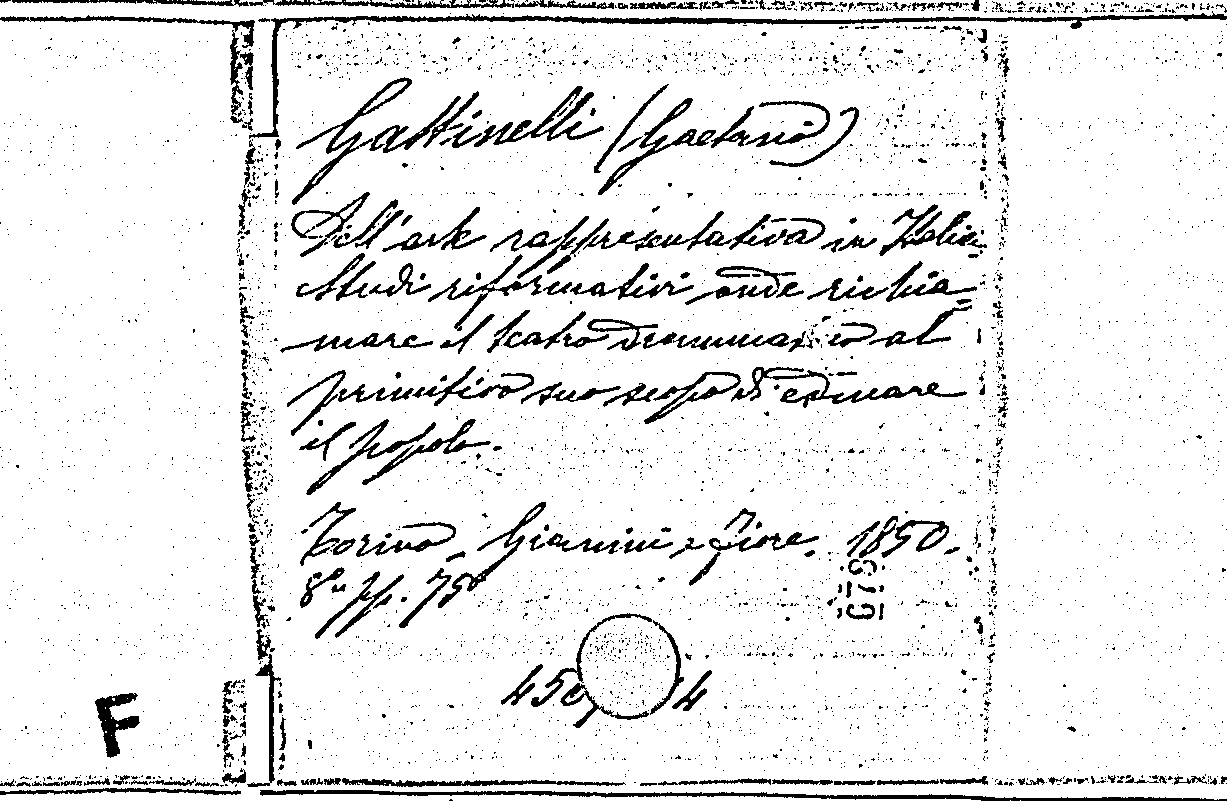 Gattinelli (Gaetano)
Dell'arte rappresentativa in Italia.
Studi riformativi onde richia=
mare il teatro drammatico al
primitivo suo scopo di educare
il popolo.
Torino, Giannini e Fiore. 1850.
8º pp. 75
450
4
F